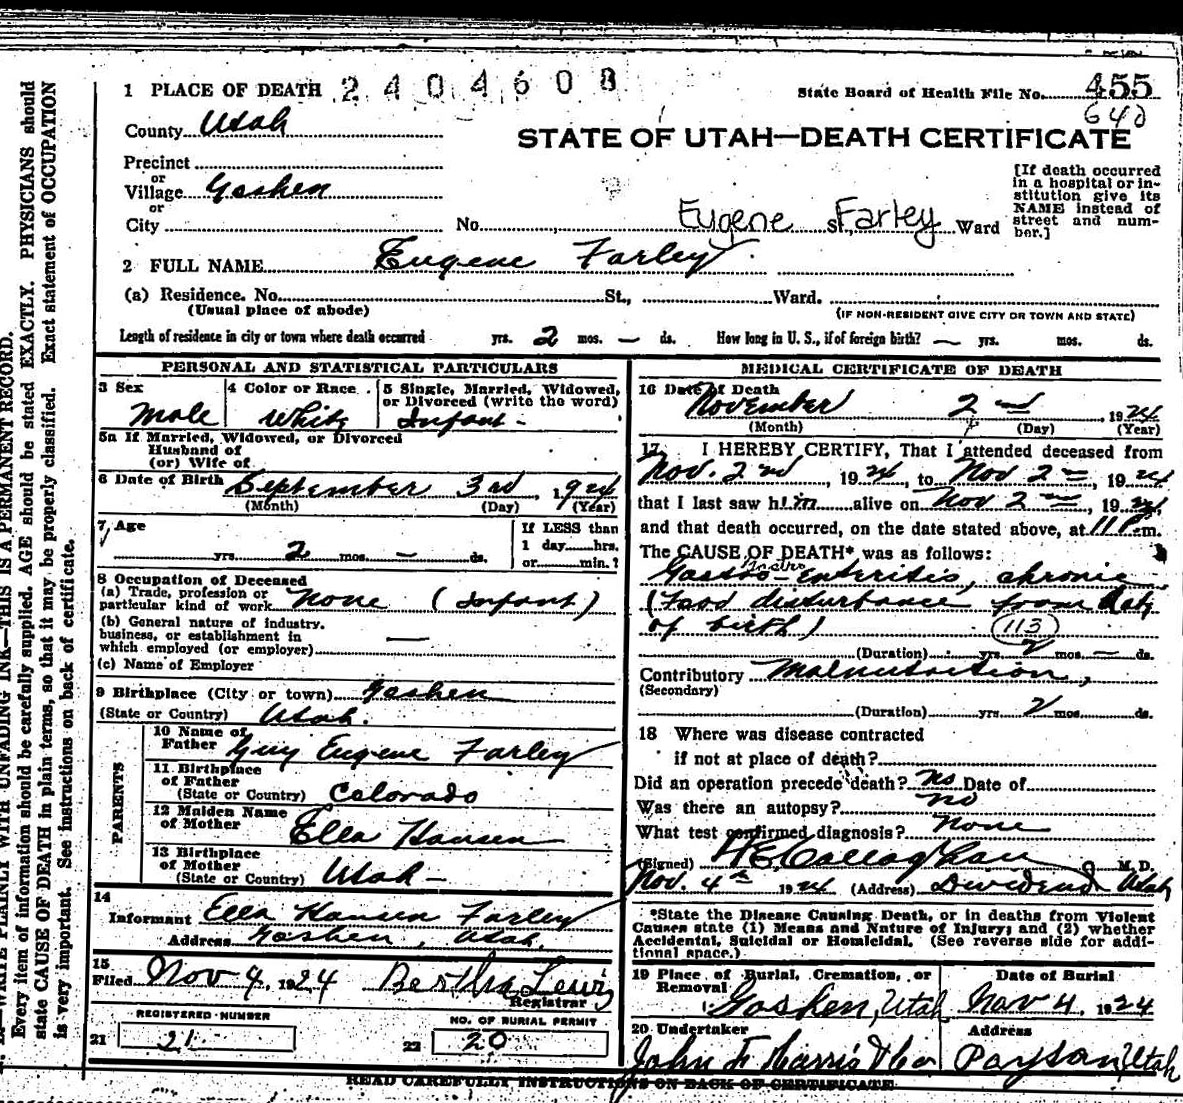 1 PLACE OF DEATH 2404608
State Board of Health File No. 455
640
County Utah
STATE OF UTAH—DEATH CERTIFICATE
Precinct
or
Village Goshen
or
City No. St., Ward
Eugene Farley
[If death occurred
in a hospital or in-
stitution give its
NAME instead of
street and num-
ber.]
2 FULL NAME Eugene Farley
(a) Residence. No. St., Ward.
(Usual place of abode)
(IF NON-RESIDENT GIVE CITY OR TOWN AND STATE)
Length of residence in city or town where death occurred yrs. 2 mos. — ds. How long in U. S., if of foreign birth? — yrs. mos. ds.
PERSONAL AND STATISTICAL PARTICULARS
3 Sex
Male
4 Color or Race
White
5 Single, Married, Widowed,
or Divorced (write the word)
Infant -
5a If Married, Widowed, or Divorced
Husband of
(or) Wife of
6 Date of Birth September 3rd, 1924
(Month) (Day) (Year)
7 Age
yrs. 2 mos. — ds.
If LESS than
1 day hrs.
or min.?
8 Occupation of Deceased
(a) Trade, profession or
particular kind of work None (Infant)
(b) General nature of industry,
business, or establishment in
which employed (or employer) —
(c) Name of Employer
9 Birthplace (City or town) Goshen
(State or Country) Utah.
PARENTS
10 Name of
Father Guy Eugene Farley
11 Birthplace
of Father
(State or Country) Colorado
12 Maiden Name
of Mother Ella Hansen
13 Birthplace
of Mother
(State or Country) Utah -
14
Informant Ella Hansen Farley
Address Goshen, Utah.
15
Filed Nov 4, 1924 Bertha Lewis
Registrar
REGISTERED NUMBER
21 21
NO. OF BURIAL PERMIT
22 20
MEDICAL CERTIFICATE OF DEATH
16 Date of Death
November 2nd, 1924
(Month) (Day) (Year)
17 I HEREBY CERTIFY, That I attended deceased from
Nov. 2nd, 1924, to Nov 2nd, 1924
that I last saw him alive on Nov 2nd, 1924,
and that death occurred, on the date stated above, at 11 P.m.
The CAUSE OF DEATH* was as follows:
Gastro-Enteritis, chronic
(Food disturbance from day
of birth) 113
(Duration) yrs. 2 mos. — ds.
Contributory Malnutrition,
(Secondary)
(Duration) yrs 2 mos. ds.
18 Where was disease contracted
if not at place of death?
Did an operation precede death? No Date of
Was there an autopsy? no
What test confirmed diagnosis? None
(Signed) H E Callaghan M.D.
Nov. 4th, 1924 (Address) Dividend Utah
*State the Disease Causing Death, or in deaths from Violent
Causes state (1) Means and Nature of Injury; and (2) whether
Accidental, Suicidal or Homicidal. (See reverse side for addi-
tional space.)
19 Place of Burial, Cremation, or
Removal
Goshen, Utah
Date of Burial
Nov 4, 1924
20 Undertaker
John F Harris & Co
Address
Payson, Utah
READ CAREFULLY INSTRUCTIONS ON BACK OF CERTIFICATE
WRITE PLAINLY WITH UNFADING INK—THIS IS A PERMANENT RECORD.
Every item of information should be carefully supplied. AGE should be stated EXACTLY. PHYSICIANS should
state CAUSE OF DEATH in plain terms, so that it may be properly classified. Exact statement of OCCUPATION
is very important. See instructions on back of certificate.